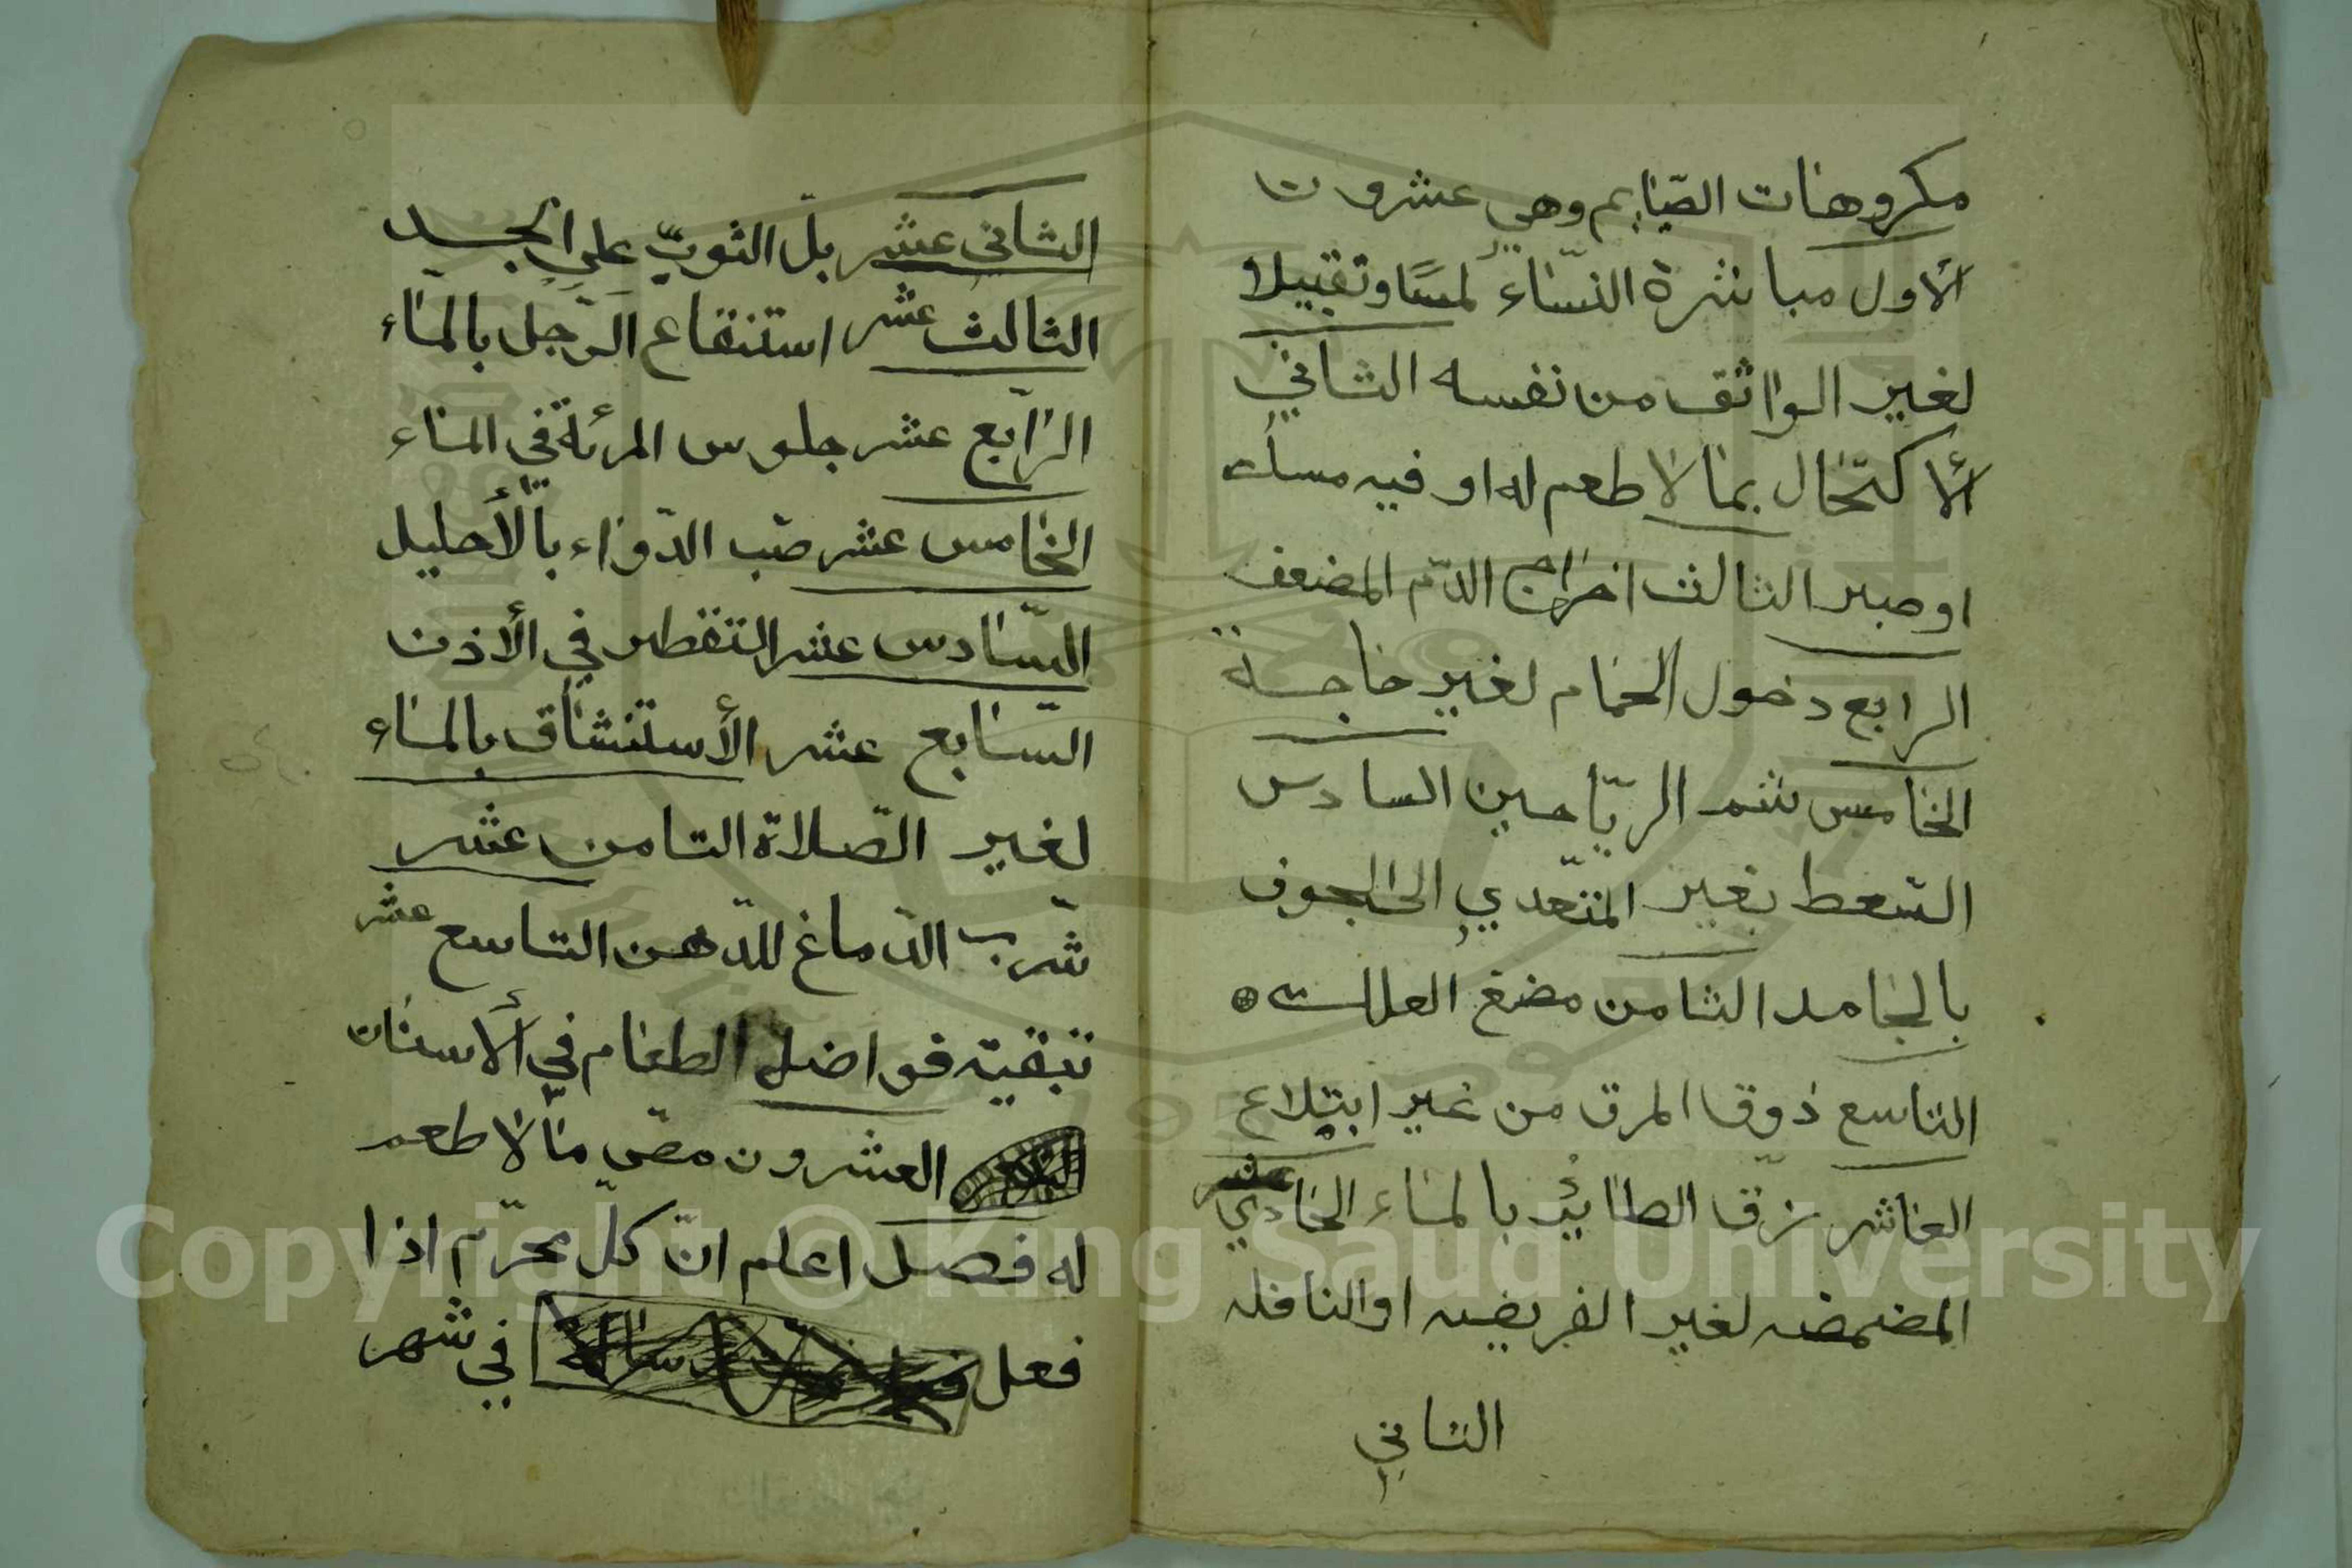 مكروهات الصّايم وهي عشرون
الأول مباشرة النّساء لمسًا وتقبيلا
لغير الواثق من نفسه الثاني
ألاكتحال بما لا طعم له او فيه مسك
او صبر الثالث اخراج الدّم المضعف
الرابع دخول الحمام لغير حاجة
الخامس شم الريّاحين السادس
التسعط بغير المتعّدي الى الجوف
بالجامد الثامن مضغ العلك
التاسع ذوق المرق من غير ابتلاع
العاشر زقّ الطائر بالماء الحادي عشر
المضمضه لغير الفريضه او النافله
الثاني
الثاني عشر بلّ الثوب على الجسد
الثالث عشر استنقاع الرّجل بالماء
الرّابع عشر جلوس المرئة في الماء
الخامس عشر صّب الدّواء بالأحليل
السّادس عشر التقطير في الأذن
السّابع عشر الأستنشاق بالماء
لغير الصّلاة الثامن عشر
شرب الدّماغ للدّهن التاسع عشر
تبقيته فواضل الطعام في ألاسنان
العشرون مصّ ما لا طعم
له فصل اعلم انّ كلّ محرّم اذا
فعل في شهر
Copyright © King Saud University